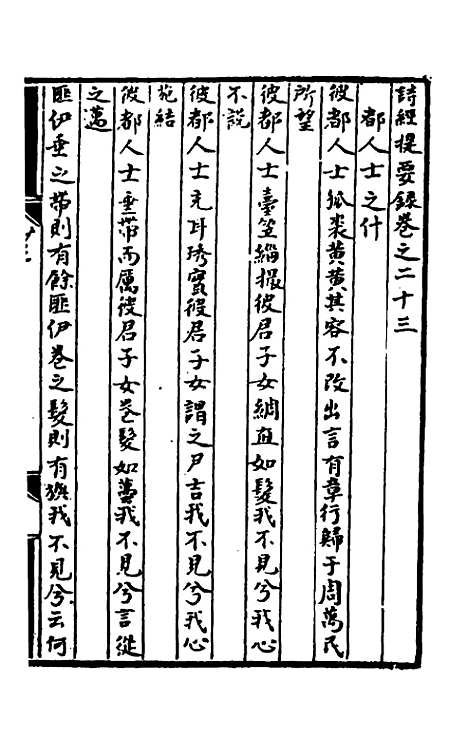 詩經提要錄卷之二十三
都人士之什
彼都人士狐裘黃黃其容不改出言有章行歸于周萬民
所望
彼都人士臺笠緇撮彼君子女綢直如髮我不見兮我心
不說
彼都人士充耳琇實彼君子女謂之尹吉我不見兮我心
苑結
彼都人士垂帶而厲彼君子女卷髮如蠆我不見兮言從
之邁
匪伊垂之帶則有餘匪伊卷之髮則有旟我不見兮云何